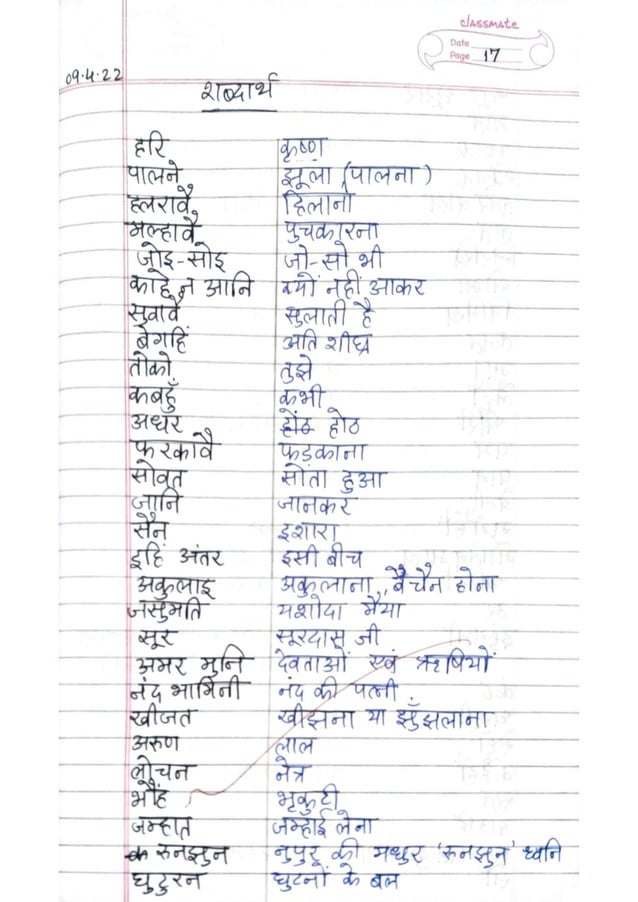 classmate
Date
Page 17
09.4.22
शब्दार्थ
हरि कृष्ण
पालने झूला (पालना)
हलरावै हिलाना
मल्हावै पुचकारना
जोइ-सोइ जो-सो भी
काहे न आनि क्यों नहीं आकर
सुवावै सुलाती है
बेगहिं अति शीघ्र
तोको तुझे
कबहुँ कभी
अधर होंठ होठ
फरकावै फड़काना
सोवत सोता हुआ
जानि जानकर
सैन इशारा
इहिं अंतर इसी बीच
अकुलाइ अकुलाना, बैचैन होना
जसुमति यशोदा मैया
सूर सूरदास जी
अमर मुनि देवताओं एवं ऋषियों
नंद भामिनी नंद की पत्नी.
खीजत खीझना या झुँझलाना
अरुण लाल
लोचन नेत्र
भौंह भृकुटी
जम्हात जम्हाई लेना
रुनझुन नुपुर की मधुर 'रुनझुन' ध्वनि
घुटुरन घुटनों के बल